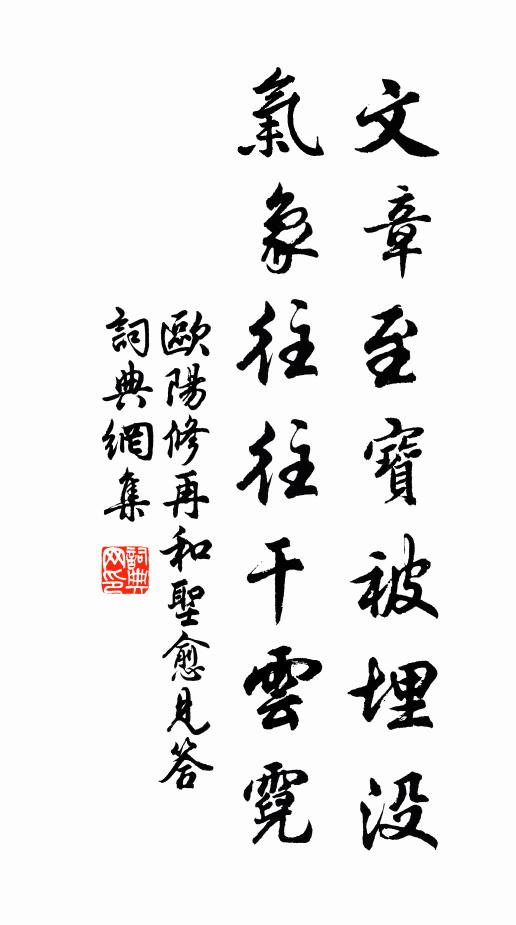 文章至寶被埋没
氣象往往干雲霓
歐陽修再和聖愈見答
詞典網集
詞典网印